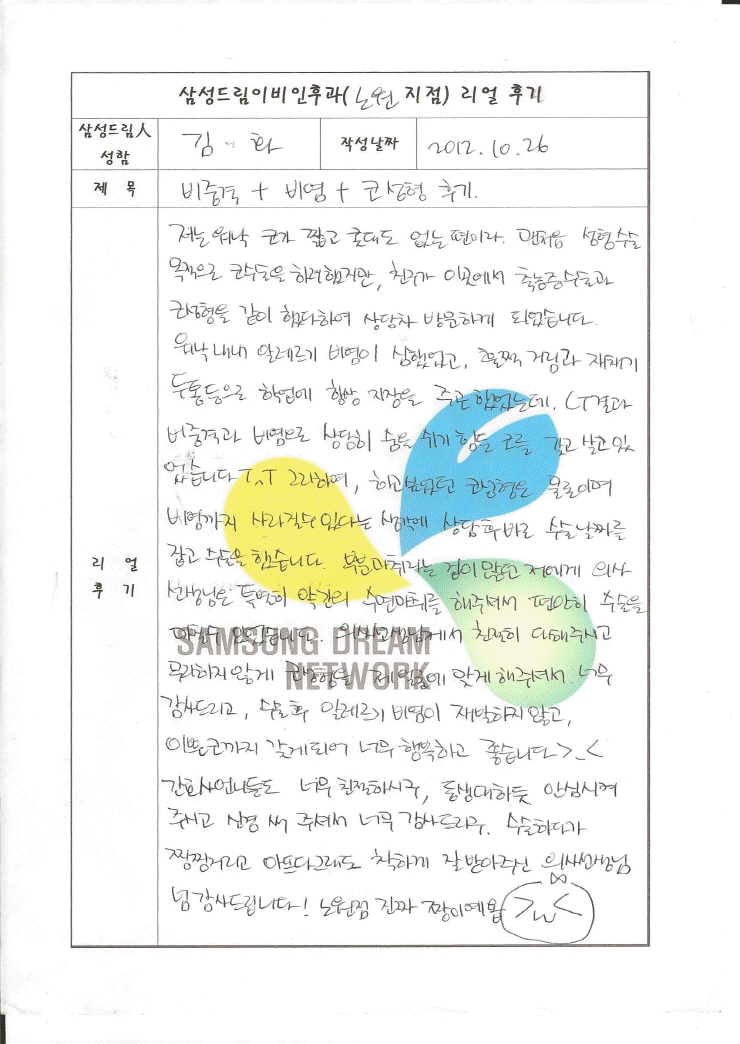 삼성드림이비인후과( 노원 지점) 리얼 후기
삼성드림人 성함 김 화 작성날짜 2012.10.26
제 목 비중격 + 비염 + 코성형 후기.
저는 워낙 코가 짧고 콧대도 없는 편이라. 맨처음 성형수술
목적으로 코수술을 하려했지만, 친구가 이곳에서 축농증수술과
코성형을 같이 했다하여 상담차 방문하게 되었습니다.
워낙 내내 알레르기 비염이 심했었고, 훌쩍 거림과 재채기
두통등으로 학업에 항상 지장을 주곤 했었는데, CT결과
비중격과 비염으로 상당히 숨을 쉬기 힘든 코를 갖고 살고 있
었습니다 T^T 그리하여, 하고싶었던 코성형은 물론이며
비염까지 사라질수 있다는 생각에 상담후 바로 수술날짜를
잡고 수술을 했습니다. 부분마취라는 겁이 많던 저에게 의사
선생님은 특별히 약간의 수면마취를 해주셔서 편안히 수술을
수 있었습니다. 의사선생님께서 친절히 대해주시고
무리하지 않게 코성형을 제 얼굴에 맞게 해주셔서 너무
감사드리고, 수술후 알레르기 비염이 재발하지 않고,
이쁜코까지 갖게되어 너무 행복하고 좋습니다 >_<
간호사언니들도 너무 친절하시구, 동생대하듯 안심시켜
주시고 신경 써 주셔서 너무 감사드리구. 수술하다가
찡찡거리고 아프다그래도 착하게 잘 받아주신 의사선생님
넘 감사드립니다! 노원점 진짜 짱이예욥 >w<
리 얼
후 기
SAMSUNG DREAM
NETWORK